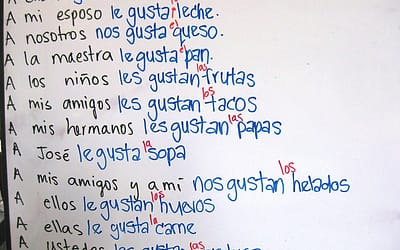 A mi esposo le gusta leche.
A nosotros nos gusta el queso.
A la maestra le gusta el pan.
A los niños les gustan las frutas
A mis amigos les gustan los tacos
A mis hermanos les gustan las papas
A José le gusta la sopa
A mis amigos y a mí nos gustan los helados
A ellos le gustan los huevos
A ellas le gusta la carne
A Ustedes les las